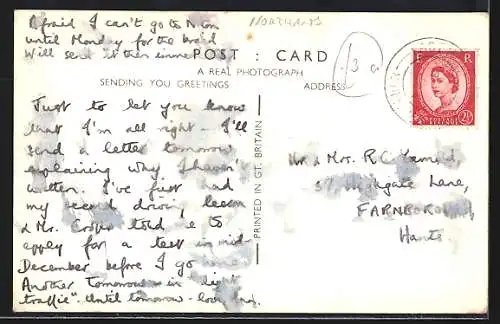 Afraid I can't go to N'ton
until Monday for the braid
Will send it then
NORTHANTS
POST : CARD
A REAL PHOTOGRAPH
SENDING YOU GREETINGS
ADDRESS
E R
POSTAGE
REVENUE
2½
Just to let you know
that I'm all right - I'll
send a letter tomorrow
explaining why I haven't
written. I've just had
my second driving lesson
& Mr. Cooper told me to
apply for a test in mid-
December before I go
Another tomorrow - in "light
traffic" Until tomorrow - love
PRINTED IN GT. BRITAIN
Mr & Mrs. R.C.
37, Highgate Lane,
FARNBOROUGH,
Hants